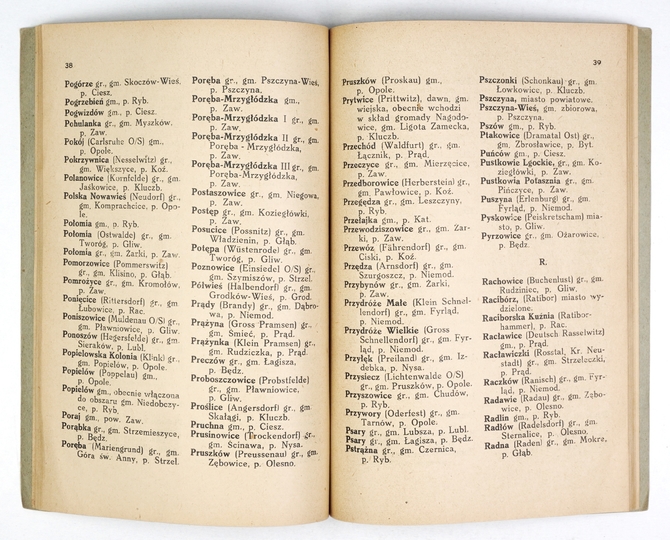 38
Pogórze gr., gm. Skoczów-Wieś,
p. Ciesz.
Pogrzebień gm., p. Ryb.
Pogwizdów gm., p. Ciesz.
Pohulanka gr., gm. Myszków.
p. Zaw.
Pokój (Carlsruhe O/S) gm.,
p. Opole.
Pokrzywnica (Nesselwitz) gr.,
gm, Większyce, p. Koź.
Polanowice (Kornfelde) gr., gm.
Jaśkowice, p. Kluczb.
Polska Nowawieś (Neudorf) gr.,
gm, Komprachcice, p. Opo-
le.
Połomia gm., p. Ryb.
Połomia (Ostwalde) gr., gm.
Tworóg, p. Gliw.
Połomia gr., gm. Żarki, p. Zaw.
Pomorzowice (Pommerswitz)
gr., gm, Klisino, p. Głąb.
Pomrożyce gr., gm. Kromołów.
p. Zaw.
Ponięcice (Rittersdorf) gr., gm
Łubowice, p. Rac.
Poniszowice (Muldenau O/S) gr.,
gm, Pławniowice, p. Gliw.
Ponoszów (Hegersfelde) gr., gm.
Sieraków, p. Lubl.
Popielowska Kolonia (Klink) gr.,
gm, Popielów, p. Opole.
Popielów (Poppelau) gm.,
p. Opole.
Popielów gm., obecnie włączona
do obszaru gm. Niedobczy-
ce, p. Ryb.
Poraj gm., pow. Zaw.
Porąbka gr., gm. Strzemieszyce,
p. Będz.
Poręba (Mariengrund) gr., gm.
Góra św. Anny, p. Strzel.
Poręba gr., gm. Pszczyna-Wieś,
p. Pszczyna,
Poręba-Mrzygłódzka gm.,
p. Zaw.
Poręba-Mrzygłódzka I gr., gm.
p. Zaw.
Poręba-Mrzygłódzka II gr., gm.
Poręba - Mrzygłódzka,
p. Zaw.
Poręba-Mrzygłódzka III gr., gm.
Poręba-Mrzygłódzka,
p. Zaw.
Postaszowice gr., gm. Niegowa,
p. Zaw.
Postęp gr., gm. Koziegłówki,
p. Zaw.
Posucice (Possnitz) gr., gm.
Władzienin, p. Głąb.
Potępa (Wüstenrode) gr., gm.
Tworóg, p. Gliw.
Poznowice (Einsiedel O/S) gr.
gm. Szymiszów, p. Strzel.
Półwieś (Halbendorf) gr., gm.
Grodków-Wieś, p. Grod.
Prądy (Brandy) gr., gm. Dąbro-
wa, p. Niemod.
Prążyna (Gross Pramsen) gr.,
gm. Śmieć, p. Prąd.
Prążynka (Klein Pramsen) gr.,
gm. Rudziczka, p. Prąd.
Preczów gr., gm. Łagisza,
p. Będz.
Proboszczowice (Probstfelde)
gr., gm. Pławniowice,
p. Gliw.
Proślice (Angersdorf) gr., gm.
Skałagi, p. Kluczb.
Pruchna gm., p. Ciesz.
Prusinowice (Trockendorf) gr.,
gm. Ścinawa, p. Nysa.
Pruszków (Preussenau) gr., gm.
Zębowice, p. Olesno.
39
Pruszków (Proskau) gm.,
p. Opole.
Prytwice (Prittwitz), dawn, gm.
wiejska, obecnie wchodzi
w skład gromady Nagodo-
wice, gm. Ligota Zamecka,
p. Kluczb.
Przechód (Waldfurt) gr., gm.
Łącznik, p. Prąd,
Przeczyce gr., gm. Mierzęcice,
p. Zaw.
Przedborowice (Herberstein) gr.,
gm, Pawłowice, p. Koź.
Przegędza gr., gm. Leszczyny,
p. Ryb.
Przełajka gm., p. Kat.
Przewodziszowice gr., gm. Żar-
ki, p. Zaw.
Przewóz (Fährendorf) gr., gm.
Ciski, p. Koź.
Przędza (Arnsdorf) gr., gm.
Szurgoszcz, p. Niemod.
Przybynów gr., gm. Żarki,
p. Zaw.
Przydroże Małe (Klein Schnel-
lendorf) gr., gm. Fyrląd,
p. Niemod.
Przydroże Wielkie (Gross
Schnellendorf) gr., gm. Fyr-
ląd, p. Niemod.
Przyłęk (Preiland) gr., gm. Iz-
debka, p. Nysa.
Przysiecz (Lichtenwalde O/S)
gr., gm. Pruszków, p. Opole.
Przyszowice gr., gm. Chudów,
p. Ryb.
Przywory (Oderfest) gr., gm.
Tarnów, p. Opole.
Psary gr., gm. Lubsza, p. Lubl.
Psary gr., gm. Łagisza, p. Będz.
Pstrążna gr., gm. Czernica,
p. Ryb.
Pszczonki (Schonkau) gr., gm.
Łowkowice, p. Kluczb.
Pszczyna, miasto powiatowe.
Pszczyna-Wieś, gm, zbiorowa,
p. Pszczyna.
Pszów gm., p. Ryb.
Ptakowice (Dramatal Ost) gr.,
gm, Zbrosławice, p. Byt.
Puńców gm., p. Ciesz.
Pustkowie Lgockie, gr., gm. Ko-
ziegłówki, p. Zaw.
Pustkowia Potasznia gr., gm.
Pińczyce, p. Zaw.
Puszyna (Erlenburg) gr., gm.
Fyrląd, p. Niemod.
Pyskowice (Peiskretscham) mia-
sto, p. Gliw.
Pyrzowice gr., gm. Ożarowice,
p. Będz.
R.
Rachowice (Buchenlust) gr., gm.
Rudziniec, p. Gliw.
Racibórz, (Ratibor) miasto wy-
dzielone.
Raciborska Kuźnia (Ratibor-
hammer), p. Rac.
Racławice (Deutsch Rasselwitz)
gm., p. Prąd.
Racławiczki (Rosstal, Kr. Neu-
stadt) gr., gm. Strzeleczki,
p. Prąd.
Raczków (Ranisch) gr., gm. Fyr-
ląd, p. Niemod.
Radawie (Radau) gr., gm. Zębo-
wice, p. Olesno.
Radlin gm., p. Ryb.
Radłów (Radelsdorf) gr., gm.
Sternalice, p. Olesno.
Radna (Raden) gr., gm. Mokre,
p. Głąb.